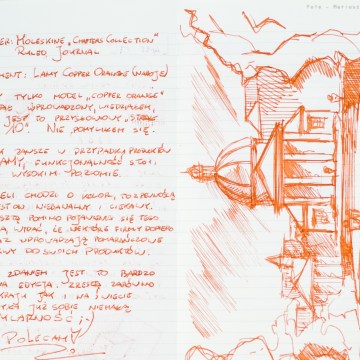 ER: MOLESKINE „CHATEAS COLLECTION"
RULED JOURNAL
MENT: LAMY COPPER ORANGE (NABOJE)
TYLKO MODEL „COPPER ORANGE"
WPROWADZONY, WIEDZIAŁEM,
JEST TO PRZYSŁOWIOWY „STRZAŁ
10". NIE POMYLIŁEM SIĘ.
ZAWSZE W PRZYPADKU PRODUKTÓW
LAMY, FUNKCJONALNOŚĆ STOI
WYSOKIM POZIOMIE.
ELI CHODZI O KOLOR, TO Z PEWNOŚCIĄ
JEST ON NIEBANALNY I CIEKAWY.
POMIMO POJAWIENIU SIĘ TEGO
WIDAĆ, ŻE NIEKTÓRE FIRMY DOPIERO
WPROWADZAJĄ POMARAŃCZOWE
DO SWOICH PRODUKTÓW.
ZDANIEM JEST TO BARDZO
NA EDYCJA. ZRESZTĄ ZARÓWNO
KRAJU JAK I NA ŚWIECIE
JUŻ SOBIE NIEMAŁĄ
ULARNOŚĆ ;-)
POLECAM!